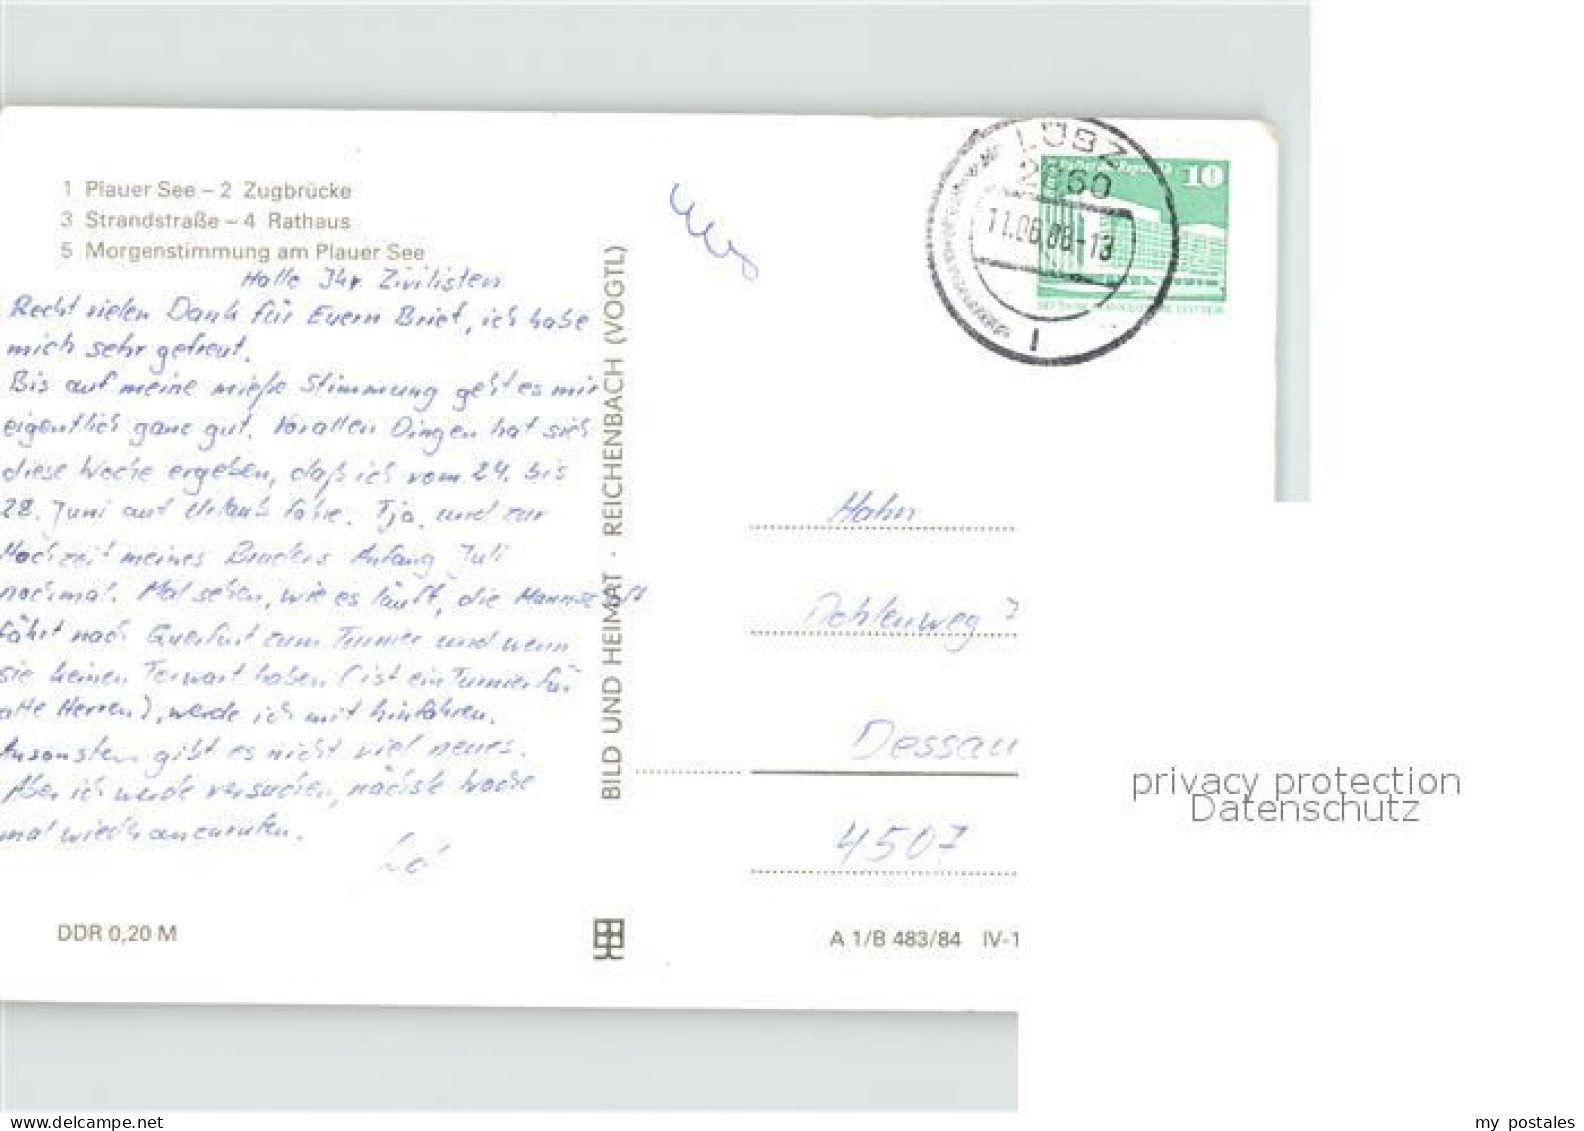 1 Plauer See – 2 Zugbrücke
3 Strandstraße – 4 Rathaus
5 Morgenstimmung am Plauer See
Hallo Ihr Zivilisten
Recht vielen Dank für Euern Brief, ich habe
mich sehr gefreut.
Bis auf meine mieße Stimmung geht es mir
eigentlich ganz gut. Vorallen Dingen hat sich
diese Woche ergeben, daß ich vom 24. bis
28. Juni auf Urlaub fahre. Tja, und zur
Hochzeit meines Bruders Anfang Juli
nochmal. Mal sehen, wie es läuft, die Mannschaft
fährt nach Querfurt zum Turnier und wenn
sie keinen Torwart haben (ist ein Turnier für
alte Herren), werde ich mit hinfahren.
Ansonsten gibt es nicht viel neues.
Aber ich werde versuchen, nächste Woche
mal wieder anzurufen.
DDR 0,20 M
BILD UND HEIMAT · REICHENBACH (VOGTL)
LÜBZ
2860
11.06.88-13
1
Palast der Republik
10
DEUTSCHE DEMOKRATISCHE REPUBLIK
Hahn
Dohlenweg 7
Dessau
4507
A 1/B 483/84 IV-1
privacy protection
Datenschutz
my postales